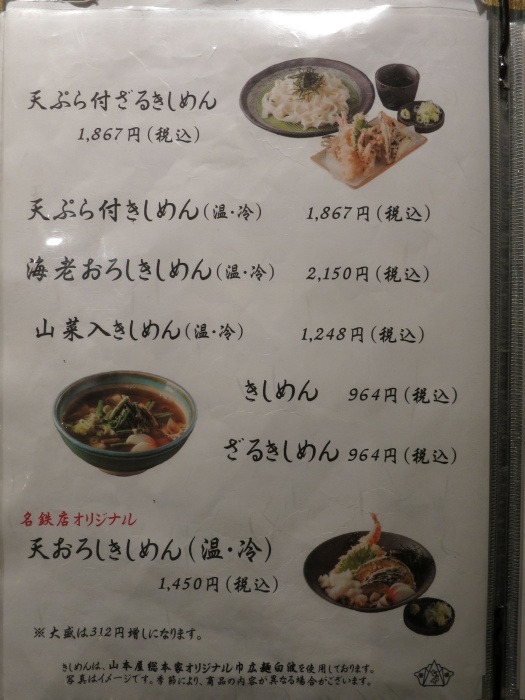 天ぷら付ざるきしめん
1,867円(税込)
天ぷら付きしめん(温・冷) 1,867円(税込)
海老おろしきしめん(温・冷) 2,150円(税込)
山菜入きしめん(温・冷) 1,248円(税込)
きしめん 964円(税込)
ざるきしめん 964円(税込)
名鉄店オリジナル
天おろしきしめん(温・冷)
1,450円(税込)
※大盛は312円増しになります。
きしめんは、山本屋総本家オリジナル巾広麺白波を使用しております。
写真はイメージです。季節により、商品の内容が異なる場合がございます。